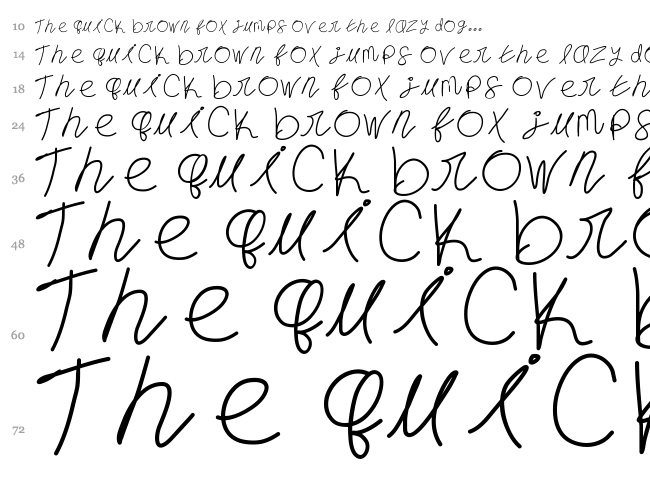 10 The quick brown fox jumps over the lazy dog...
14 The quick brown fox jumps over the lazy do
18 The quick brown fox jumps over th
24 The quick brown fox jumps
36 The quick brown f
48 The quick bro
60 The quick b
72 The quick